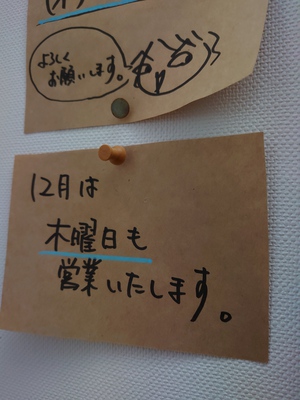 よろしく
お願いします。
12月は
木曜日も
営業いたします。